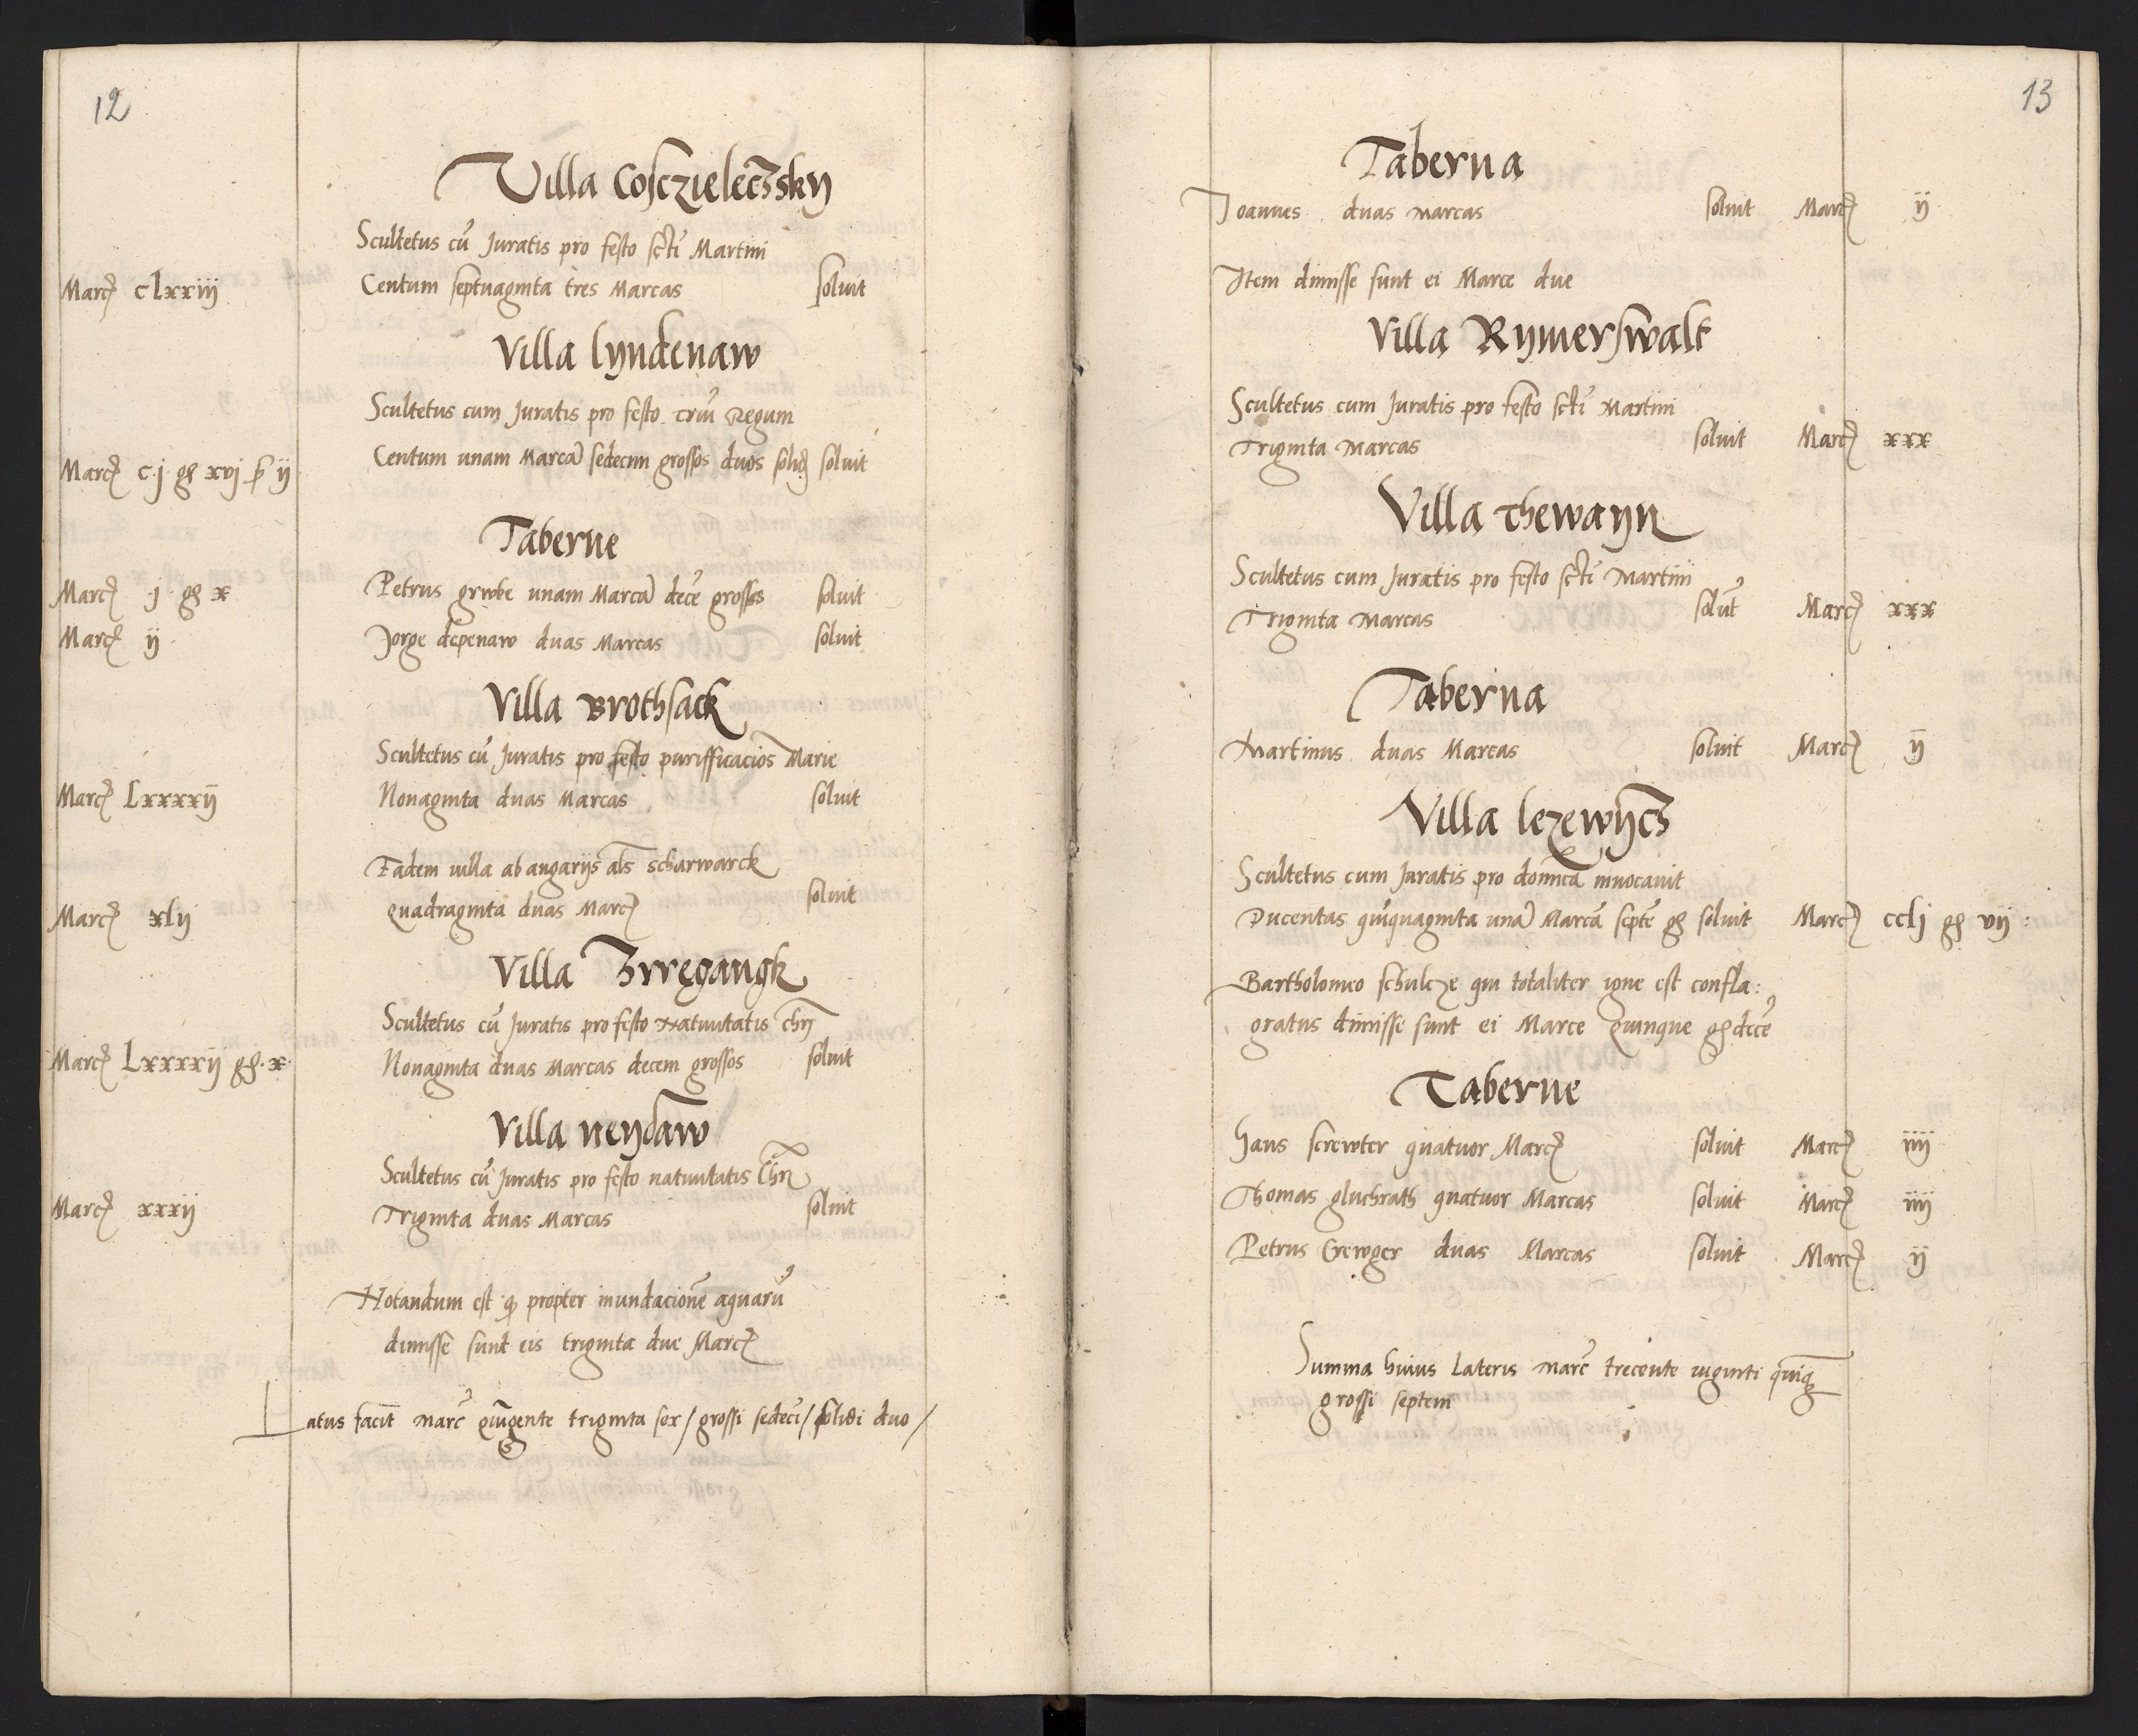 12
Villa Cosczieleczsky
Scultetus cū Juratis pro festo scti Martini
Marcȝ clxxiij Centum septuaginta tres Marcas soluit
Villa lyndenaw
Scultetus cum Juratis pro festo triū Regum
Marcȝ c j gȝ xvj ꝑ ij Centum unam Marcā sedecim grossos duos solidȝ soluit
Taberne
Marcȝ j gȝ x Petrus grwbe unam Marcā decē grossos soluit
Marcȝ ij Jorge depenaw duas Marcas soluit
Villa Brothsack
Scultetus cū Juratis pro festo purifficaciōs Marie
Marcȝ Lxxxxij Nonaginta duas Marcas soluit
Eadem villa ab angarijs als scharwarck
Marcȝ xlij quadraginta duas Marcȝ soluit
Villa Irregangk
Scultetus cū Juratis pro festo Natiuitatis chrī
Marcȝ Lxxxxij gȝ x Nonaginta duas Marcas decem grossos soluit
Villa neydaw
Scultetus cū Juratis pro festo natiuitatis Chrī
Marcȝ xxxij Triginta duas Marcas soluit
Notandum est qȝ propter inundacionē aquarū
dimisse sunt eis triginta due Marcȝ
Latus facit Marc̄ quīgente triginta sex / grossi sedecī / solidi duo /
13
Taberna
Joannes duas Marcas soluit Marcȝ ij
Item dimisse sunt ei Marce due
Villa Rymerswalt
Scultetus cum Juratis pro festo scti Martini
Triginta Marcas soluit Marcȝ xxx
Villa Thewayn
Scultetus cum Juratis pro festo scti Martini
Triginta Marcas solūt Marcȝ xxx
Taberna
Martinus duas Marcas soluit Marcȝ ij
Villa lezewycz
Scultetus cum Juratis pro domīca inuocauit
Ducentas quīquaginta unā Marcā septē gȝ soluit Marcȝ cclj gȝ vij
Bartholomeo schulcze qui totaliter igne est confla:
gratus dimisse sunt ei Marce quinque gȝ decē
Taberne
Hans screwter quatuor Marcȝ soluit Marcȝ iiij
Thomas gluchrath quatuor Marcas soluit Marcȝ iiij
Petrus Crewger duas Marcas soluit Marcȝ ij
Summa huius Lateris Marc̄ trecente viginti quīqȝ
grossi septem